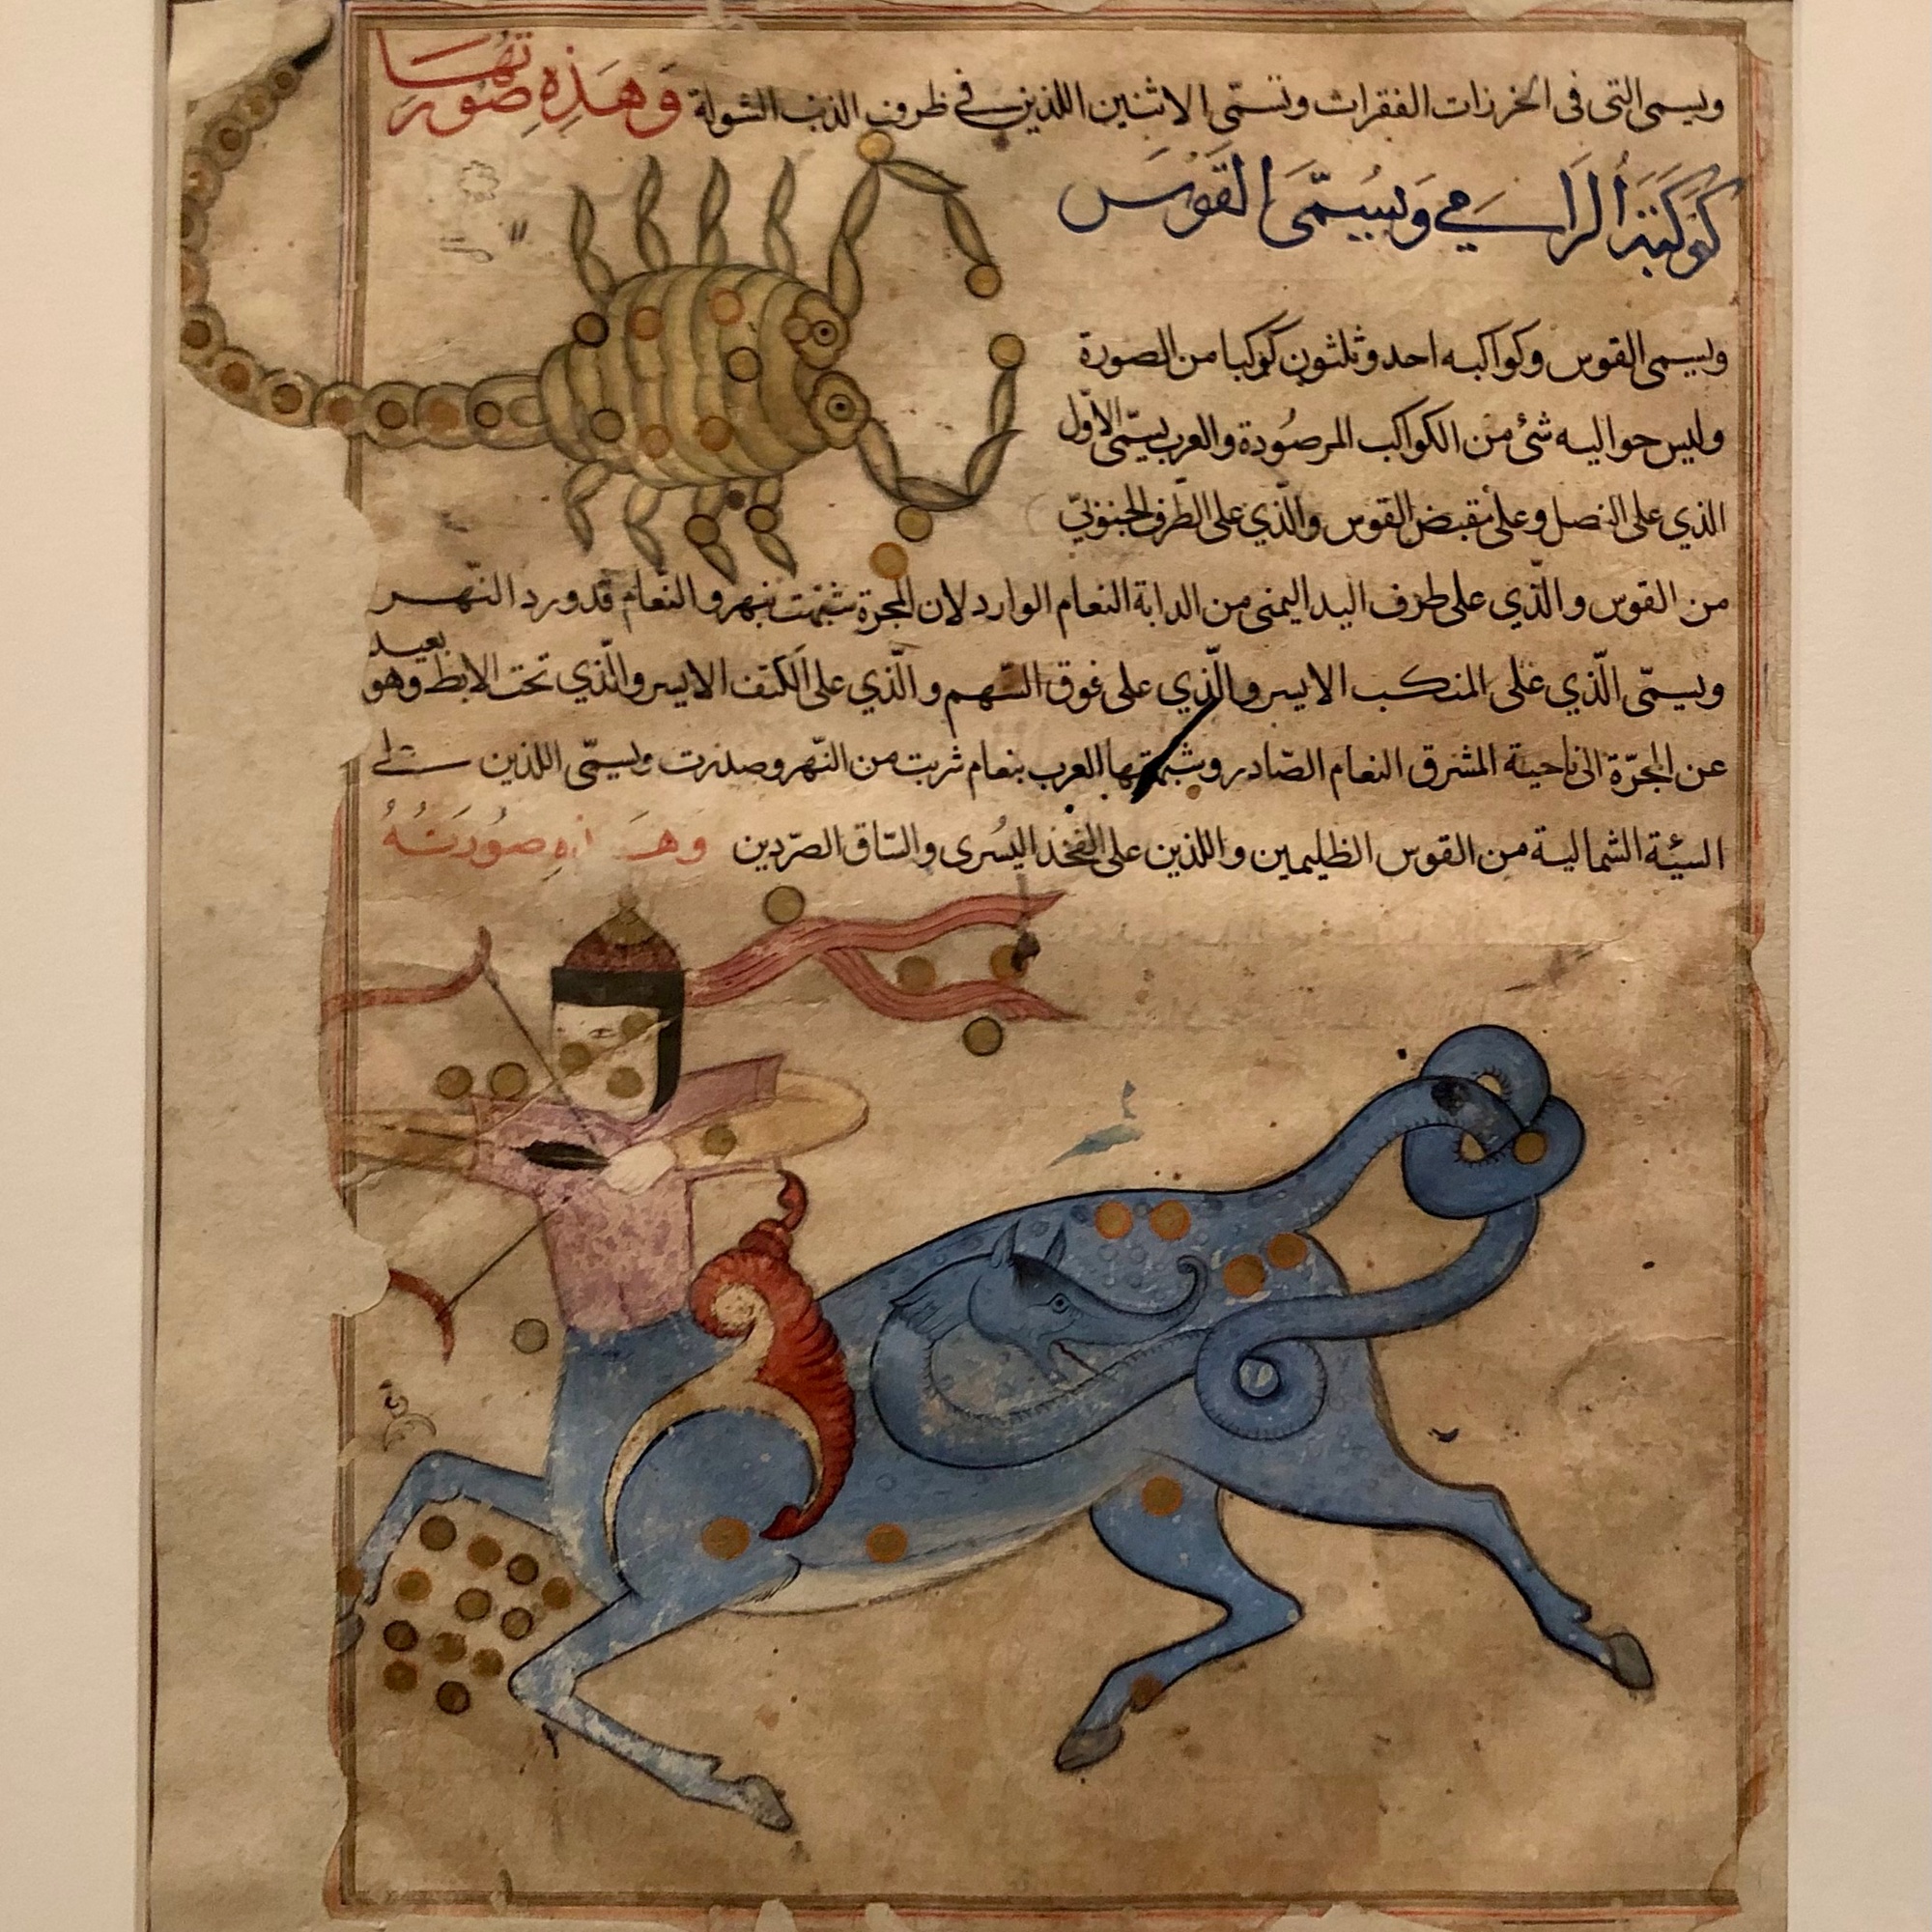 ويسمى التى فى الخرزات الفقرات وتسمّى الاثنين اللذين فى طرف الذنب الشولة وَهَذِهِ صُورَتُهَا
كَوكَبَةُ الرَامِي وَيُسَمَّى القَوسَ
ويسمى القوس وكواكبه احد وثلثون كوكبا من الصورة
وليس حواليه شئ من الكواكب المرصُودة والعرب يسمّى الاوّل
الذي على النصل وعلى مقبض القوس والّذي على الطّرف الجنوبيّ
من القوس والّذي على طرف اليد اليمنى من الدابة النعام الوارد لان المجرة شبّهت بنهر والنعام قد ورد النّهر
ويسمّى الّذي على المنكب الايسر والّذي على فوق السّهم والّذي على الكتف الايسر والّذي تحت الابط وهو بعيد
عن المجرّة الى ناحية المشرق النعام الصّادر وشبّهتها العرب بنعام شربت من النّهر وصدرت ويسمّى اللذين على
السيئة الشمالية من القوس الظليمين واللذين على الفخذ اليُسرى والسّاق الصّردين وَهَذِهِ صُورَتُهُ